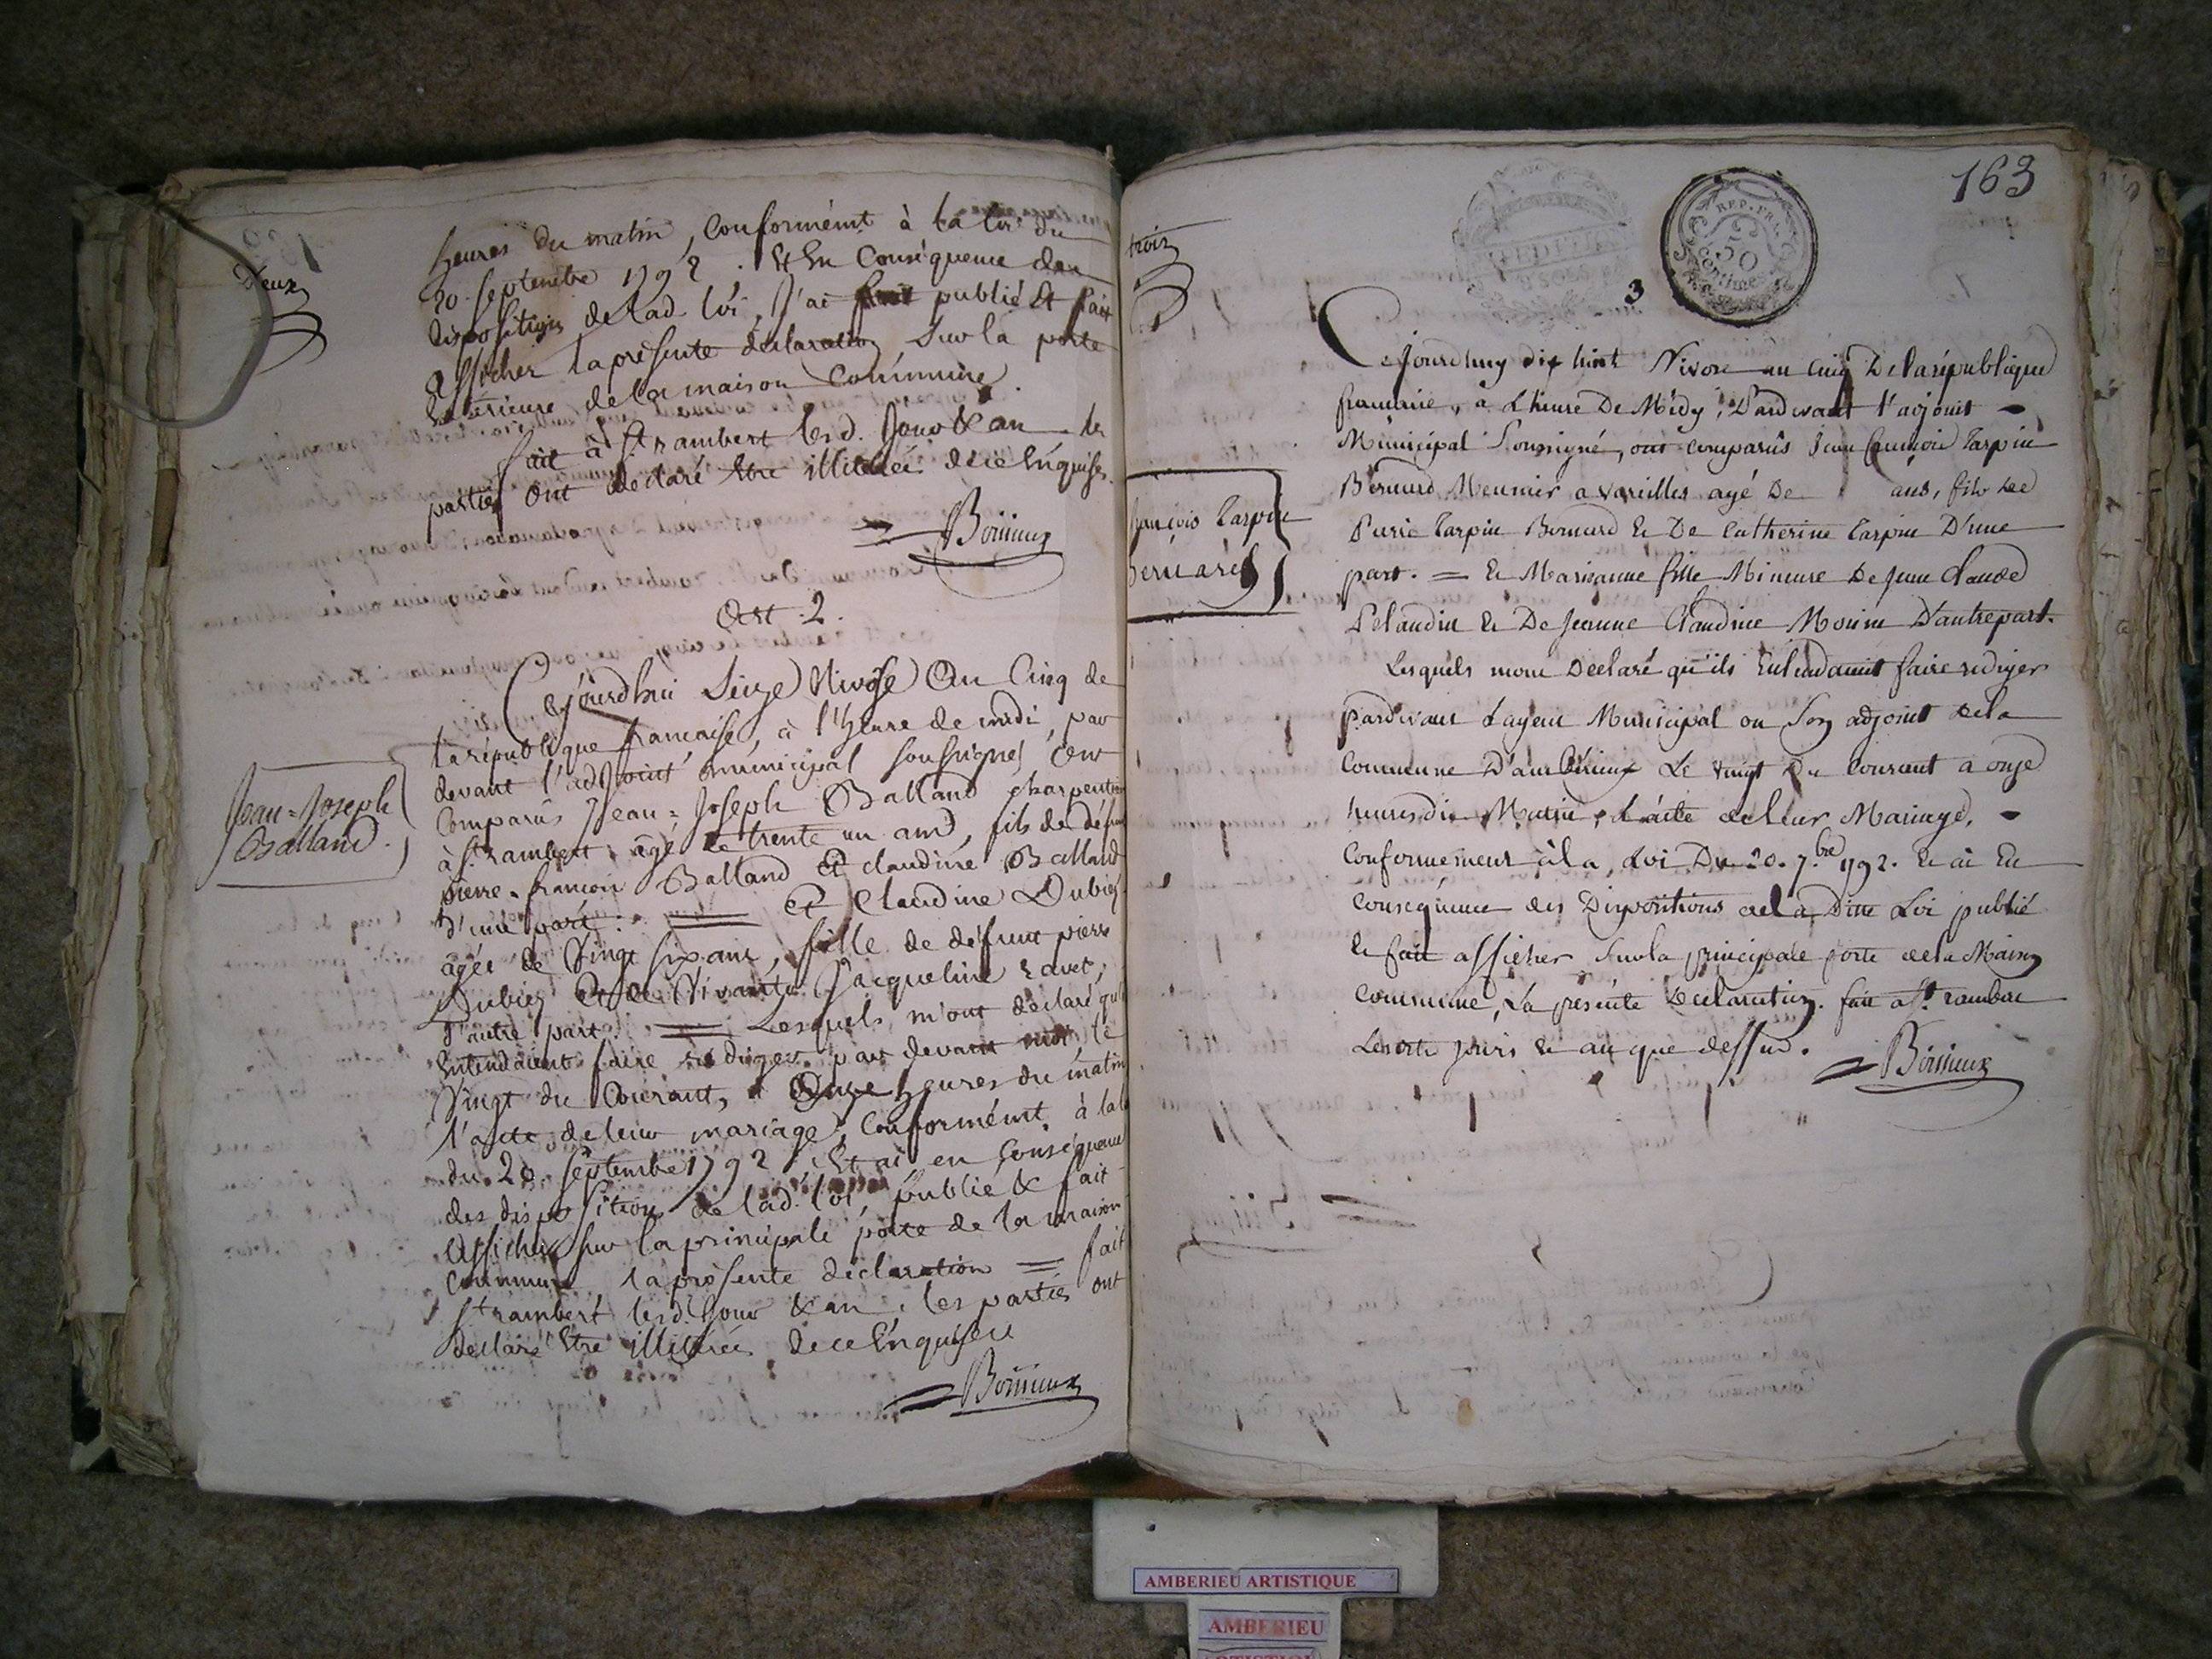 Deux
heures du matin, Conformémt à la loi du
20. septembre 1792. Et En Conséquence des
dispositions de lad. loi, J'ai publié Et fait
afficher la présente déclaration Sur la porte
Extérieure de la maison Commune.
fait à St. rambert lesd. Jour & an les
parties ont déclaré Etre illitérées de ce Enquises.
Boissieux
Art. 2.
Jean=Joseph
Balland.
Cejourdhui Seize Nivose An Cinq de
la république française, à l'heure de midi, par
devant l'adjoint municipal soussigné, ont
Comparus Jean=Joseph Balland charpentier
à St. rambert, agé de trente un ans, fils de défunt
pierre-françois Balland Et claudine Balland
d'une part. = Et Claudine Dubiez
agée de Vingt six ans, fille de défunt pierre
Dubiez Et de Vivante Jacqueline ravet,
d'autre part. = Lesquels m'ont déclaré qu'ils
Entendaient faire rédiger par devant moi, le
Vingt du Courant, à Onze heures du matin
l'acte de leur mariage, Conformémt. à la loi
du 20. septembre 1792. Et ai en Conséquence
des dispositions de lad. loi, publié & fait
afficher sur la principale porte de la maison
Commune la présente déclaration = fait
St rambert lesd. Jour & an, les parties ont
déclaré Etre illitérées de ce Enquises
Boissieux
163
trois
REP. FRA.
50
centimes
3
françois Tarpin
bernard
Cejourdhuy dix huit Nivose an cinq De la république
française, à L'heure De Midy, Pardevant l'adjoint
Municipal Soussigné, ont comparûs Jean françois Tarpin
Bernard Meunier a vareilles agé De ans, fils de
Pierre Tarpin Bernard & De Catherine Tarpin D'une
part. = & Marianne fille Mineure De Jean Claude
Pelaudin & De Jeanne Claudine Monin D'autre part.
Lesquels mont Déclaré qu'ils Entendaient faire rediger
pardevant L'agent Municipal ou Son adjoint de la
Commune D'ambérieux Le vingt du Courant a onze
heures du Matin, L'acte de leur Mariage,
Conformement à la Loi Du 20. 7.bre 1792. & ai En
Conséquence des Dispositions de la Ditte Loi publié
& fait afficher Sur la principale porte de la Maison
Commune, La présente Déclaration. fait a St. rambert
Les dits jours & an que dessus.
Boissieux
AMBERIEU ARTISTIQUE
AMBERIEU
ARTISTIQUE